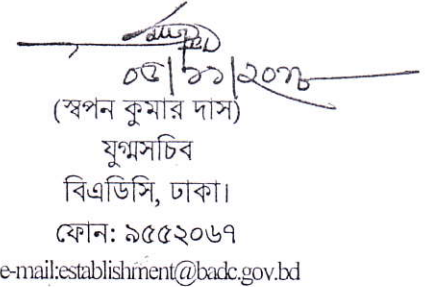 (স্বপন কুমার দাস)
যুগ্মসচিব
বিএডিসি, ঢাকা।
ফোন: ৯৫৫২০৬৭
e-mail:establishment@badc.gov.bd